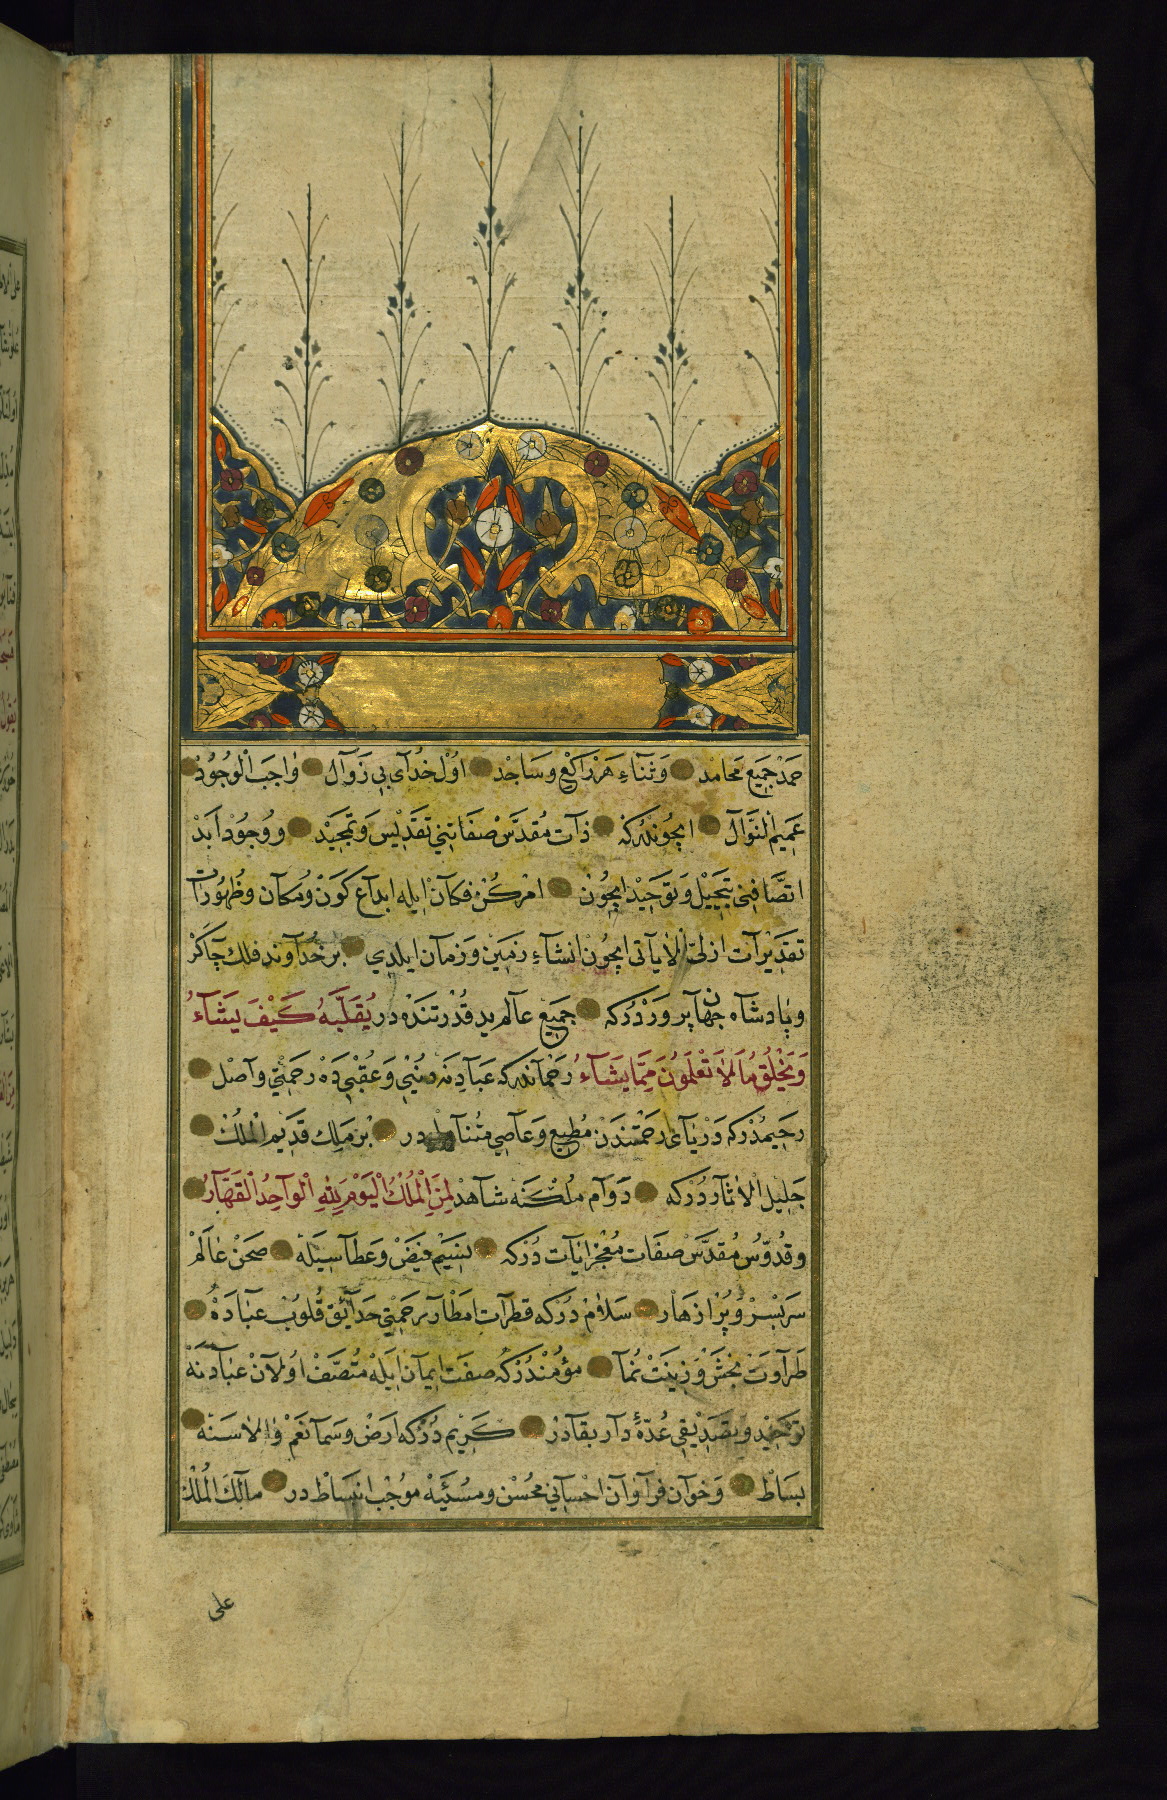 حمد جميع محامد وثناء هر راكع وساجد اول خداى بى زوال واجب الوجود
عميم النوال ايچوندركه ذات مقدس صفاتنى تقديس وتمجيد ووجود ابد
اتصافنى تبجيل وتوحيد ايچون امر كن فكان ايله ابداع كون ومكان وظهورات
تقديرات ازلى الاياتى ايچون انشاء زمين وزمان ايلدى بر خداوند فلك چاكر
وپادشاه جهان پروردركه جميع عالم يد قدرتنده در يقلبه كيف يشاء
ويخلق ما لا تعلمون مما يشاء رحماندركه عبادنه دنيى وعقبى ده رحمتى واصل
رحيمدركه درياى رحمتندن مطيع وعاصى متناول در بر ملك قديم الملك
جليل الاثاردركه دوام ملكنه شاهد لمن الملك اليوم لله الواحد القهار
وقدوس مقدس صفات معجز ايات دركه نسيم فيض وعطاسيله صحن عالم
سربسر وپر ازهار سلام دركه قطرات امطار رحمتى حدائق قلوب عباده
طراوت بخش وزينت نما مؤمندركه صفت ايمان ايله متصف اولان عبادنه
توحيد وتصديقى عدۀ دار بقادر كريم دركه ارض وسما نعم والاسنه
بساط وخوان فراوان احسانى محسن ومسيئه موجب انبساط در مالك الملك
على